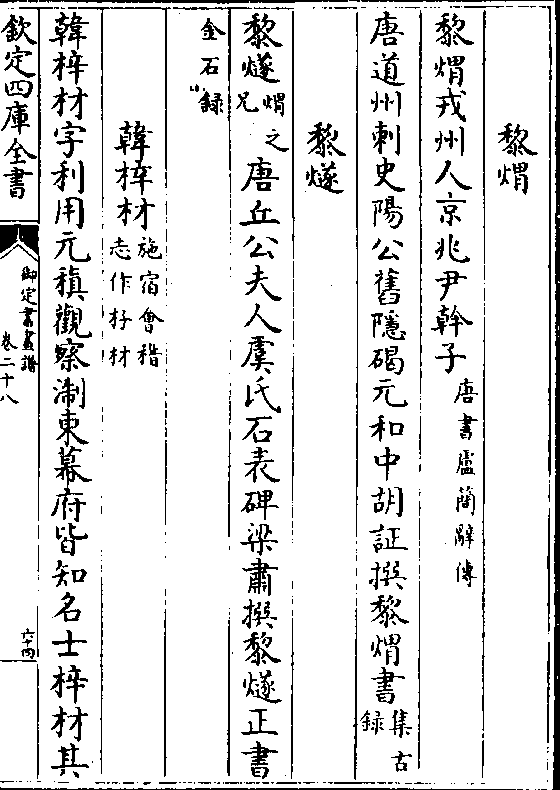 黎煟
黎煟戎州人京兆尹幹子唐書盧簡辭傳
唐道州刺史陽公舊隱碣元和中胡証撰黎煟書集古錄
黎燧
黎燧煟之兄唐丘公夫人虞氏石表碑梁肅撰黎燧正書
金石錄
韓梓材施宿會稽志作杍材
韓梓材字利用元稹觀察浙東幕府皆知名士梓材其
欽定四庫全書
御定書畫譜
卷二十八
六十四